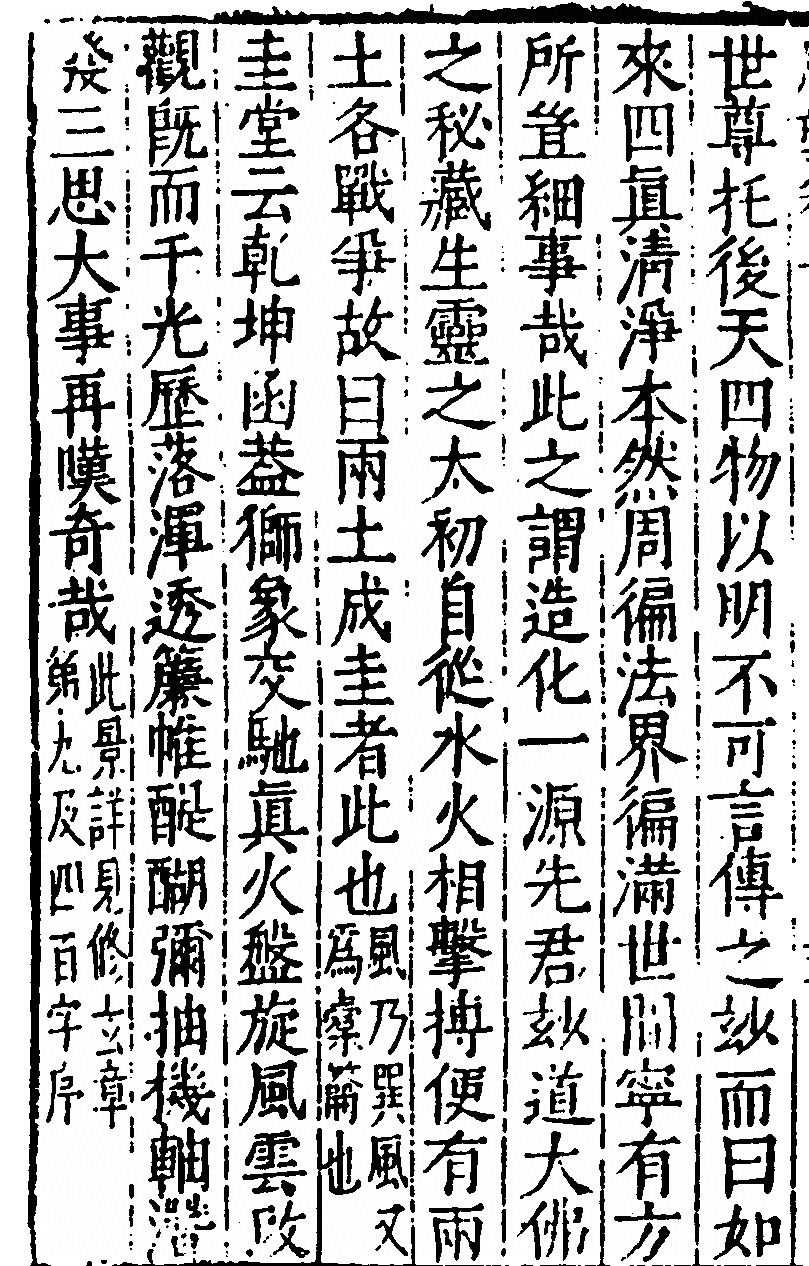 世尊托後天四物以明不可言傳之玅而曰如
來四眞清淨本然周徧法界徧滿世間寧有方
所豈細事哉此之謂造化一源先君玅道大佛
之秘藏生靈之太初自從水火相擊摶便有兩
土各戰爭故曰兩土成圭者此也風乃巽風又爲橐籥也
圭堂云乾坤函蓋獅象交馳眞火盤旋風雲改
觀既而千光歷落渾透簾帷醍醐彌抽機軸
發三思大事再嘆奇哉此景詳見修玄章第九及四百字序